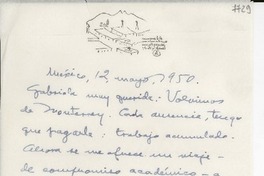 #29
México, 12 mayo, 1950.
Gabriela muy querida: Volvimos
de Monterrey. Cada ausencia, tengo
que pagarla: trabajo acumulado.
Ahora se me ofrece un viaje -
de compromiso académico - a